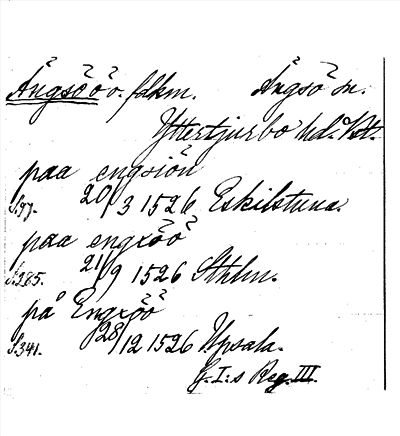 Ängsöö o. fdkm. Ängsö sn.
Yttertjurbo hd. Vstl.
paa engsiön
S.97. 20/3 1526 Eskilstuna.
paa engxöö
S.285. 21/9 1526 Sthlm.
på Engxöö
S.341. 28/12 1526 Upsala.
G. I:s Reg. III.